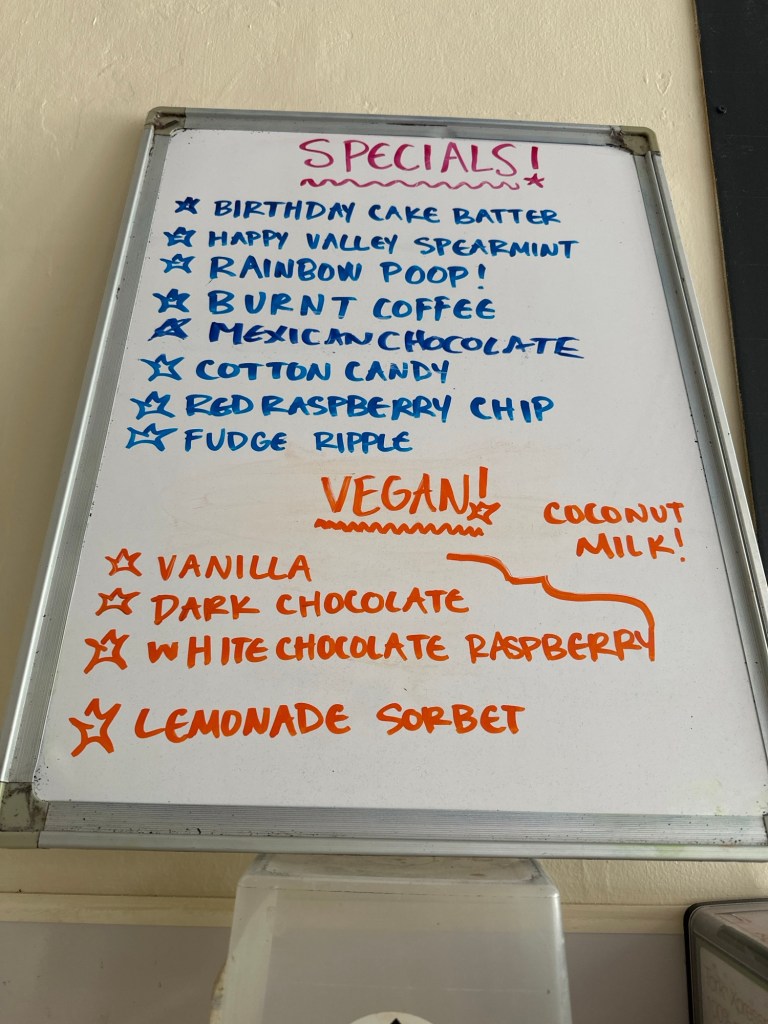 SPECIALS!
BIRTHDAY CAKE BATTER
HAPPY VALLEY SPEARMINT
RAINBOW POOP!
BURNT COFFEE
MEXICAN CHOCOLATE
COTTON CANDY
RED RASPBERRY CHIP
FUDGE RIPPLE
VEGAN!
COCONUT
MILK!
VANILLA
DARK CHOCOLATE
WHITE CHOCOLATE RASPBERRY
LEMONADE SORBET